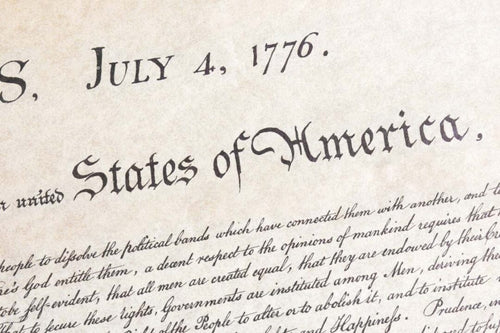 S, JULY 4, 1776.
n united States of America,
people to dissolve the political bands which have connected them with another, and to
re's God entitle them, a decent respect to the opinions of mankind requires that
to be self-evident, that all men are created equal, that they are endowed by their Cre
That to secure these rights, Governments are instituted among Men, deriving their
Right of the People to alter or to abolish it, and to institute
and Happiness. Prudence, in